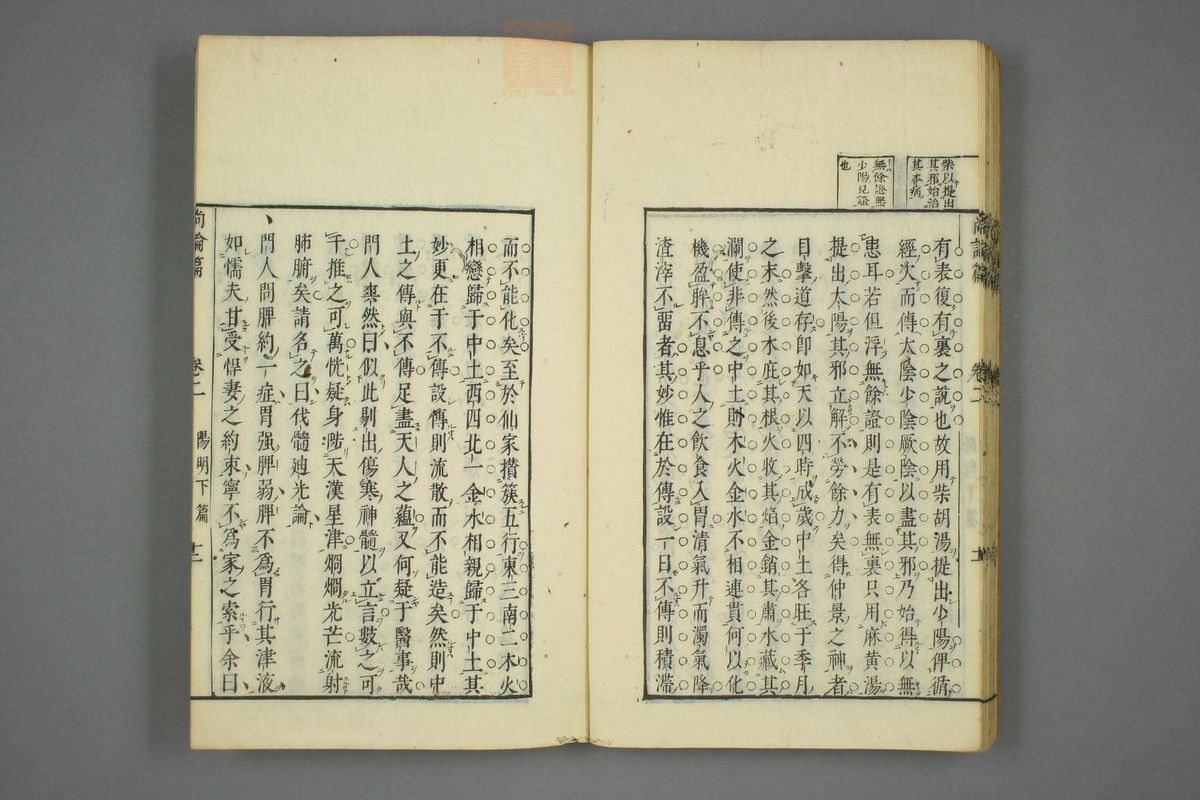 柴以提出
其邪始治
其本病
無餘證無
少陽見證
也
有表復有裏之說也故用柴胡湯提出少陽俾循
經次而傳太陰少陰厥陰以盡其邪乃始得以無
患耳若但浮無餘證則是有表無裏只用麻黄湯
提出太陽其邪立解不勞餘力矣得仲景之神者
目擊道存即如天以四時成歲中土各旺于季月
之末然後木庇其根火收其焰金銷其肅水藏其
瀾使非傳之中土則木火金水不相連貫何以化
機盈眸不息乎人之飲食入胃清氣升而濁氣降
渣滓不畱者其妙惟在於傳設一日不傳則積滯
尚論篇
卷二
十一
而不能化矣至於仙家攅簇五行東三南二木火
相戀歸于中土西四北一金水相親歸于中土其
妙更在于不傳設傳則流散而不能造矣然則中
土之傳與不傳足盡天人之蘊又何疑于醫事哉
門人爽然曰似此剔出傷寒神髓以立言數之可
千推之可萬恍疑身陟天漢星津烱烱光芒流射
肺腑矣請名之曰伐髓廸光論
門人問脾約一症胃强脾弱脾不爲胃行其津液
如懦夫甘受悍妻之約束寧不爲家之索乎余曰
尚論篇
卷二
陽明下篇
十二
zysj.com.cn